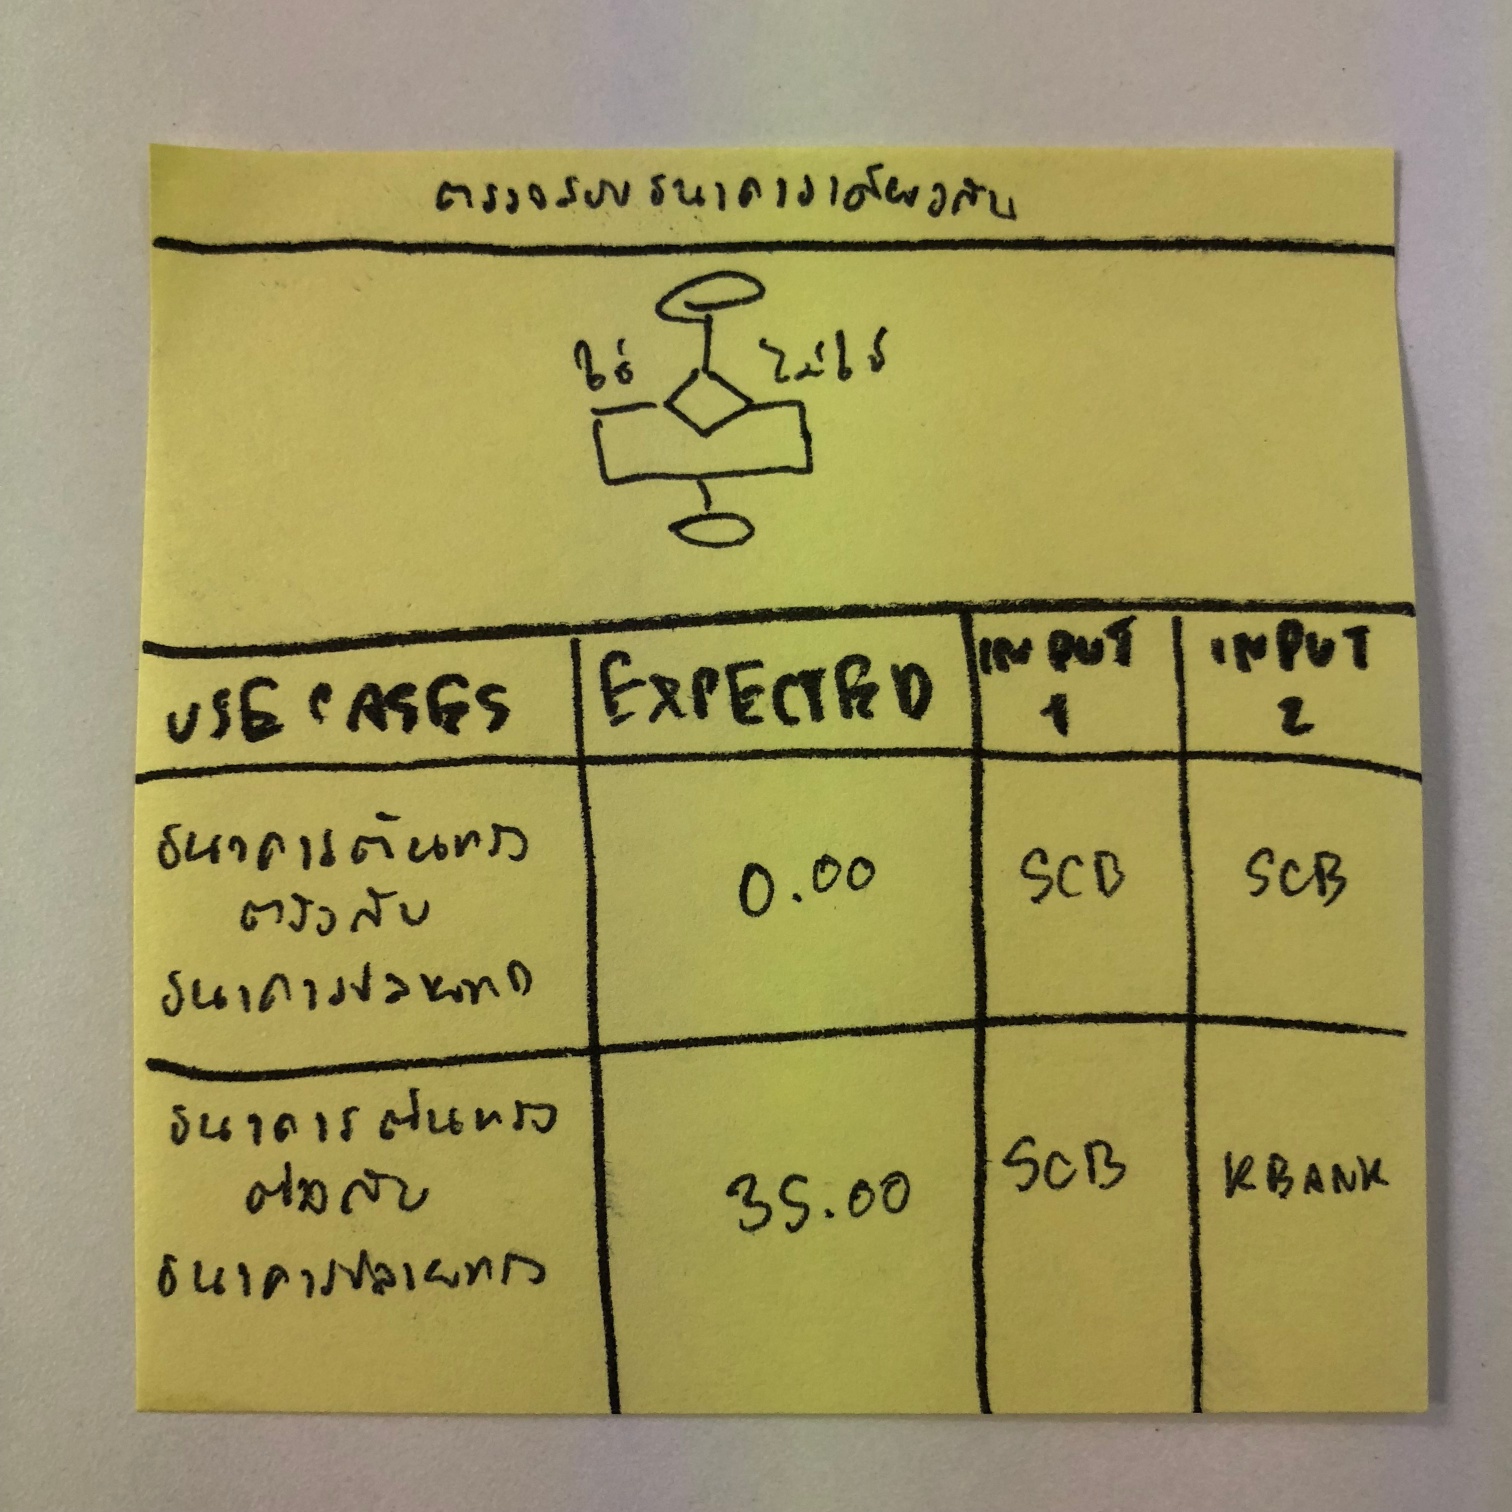 ตรวจสอบธนาคารเดียวกัน
ใช่ ไม่ใช่
USE CASES EXPECTED INPUT 1 INPUT 2
ธนาคารต้นทาง
ตรงกับ
ธนาคารปลายทาง
0.00 SCB SCB
ธนาคารต้นทาง
ต่างกับ
ธนาคารปลายทาง
35.00 SCB KBANK